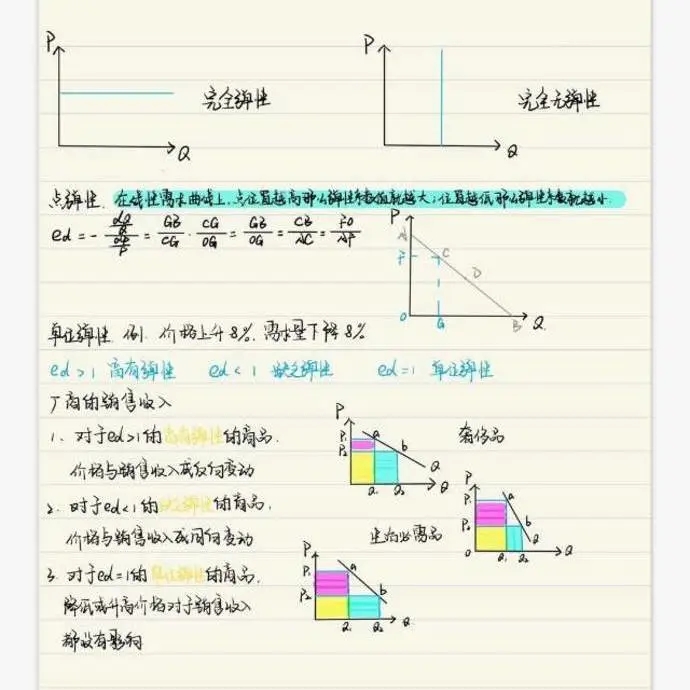 P
P
完全弹性
完全无弹性
Q
Q
点弹性. 在线性需求曲线上,点位置越高那么弹性系数值就越大;位置越低那么弹性系数就越小.
ed = - \frac{\frac{dQ}{Q}}{\frac{dP}{P}} = \frac{GB}{CG} · \frac{CG}{OG} = \frac{GB}{OG} = \frac{CB}{AC} = \frac{FO}{AF}
P
A
F
C
D
O
G
B
Q
单位弹性 例. 价格上升8%,需求量下降8%
ed>1 富有弹性 ed<1 缺乏弹性 ed=1 单位弹性
厂商的销售收入
1、对于ed>1的富有弹性的商品.
价格与销售收入成反向变动
P
P₁
P₂
a
b
Q
Q₁
Q₂
Q
奢侈品
2、对于ed<1的缺乏弹性的商品,
价格与销售收入成同向变动
生活必需品
P
P₁
P₂
a
b
Q₁
Q₂
Q
3、对于ed=1的单位弹性的商品,
降低或升高价格对于销售收入
都没有影响
P
P₁
P₂
a
b
Q₁
Q₂
Q